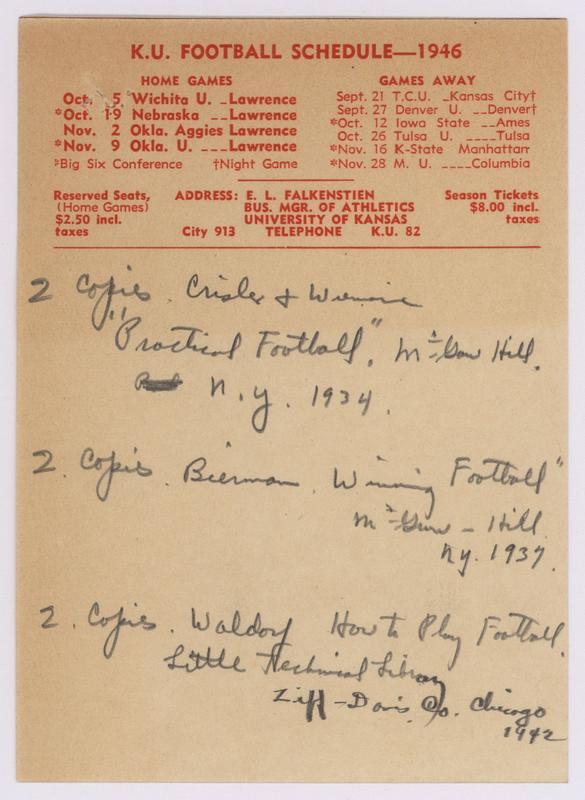 K.U. FOOTBALL SCHEDULE—1946
HOME GAMES
Oct. 5 Wichita U. _Lawrence
*Oct. 19 Nebraska __Lawrence
Nov. 2 Okla. Aggies Lawrence
*Nov. 9 Okla. U. ___Lawrence
*Big Six Conference †Night Game
GAMES AWAY
Sept. 21 T.C.U. _Kansas City†
Sept. 27 Denver U. __Denver†
*Oct. 12 Iowa State __Ames
Oct. 26 Tulsa U. ____Tulsa
*Nov. 16 K-State Manhattan
*Nov. 28 M. U. ____Columbia
Reserved Seats,
(Home Games)
$2.50 incl.
taxes
ADDRESS: E. L. FALKENSTIEN
BUS. MGR. OF ATHLETICS
UNIVERSITY OF KANSAS
City 913 TELEPHONE K.U. 82
Season Tickets
$8.00 incl.
taxes
2 Copies. Crisler &
"Practical Football". McGraw Hill.
N.Y. 1934.
2. Copies. Bierman. Winning Football"
McGraw - Hill.
N.Y. 1937.
2. Copies. Waldorf How to Play Football.
Little Technical Library
Ziff-Davis Co. Chicago
1942